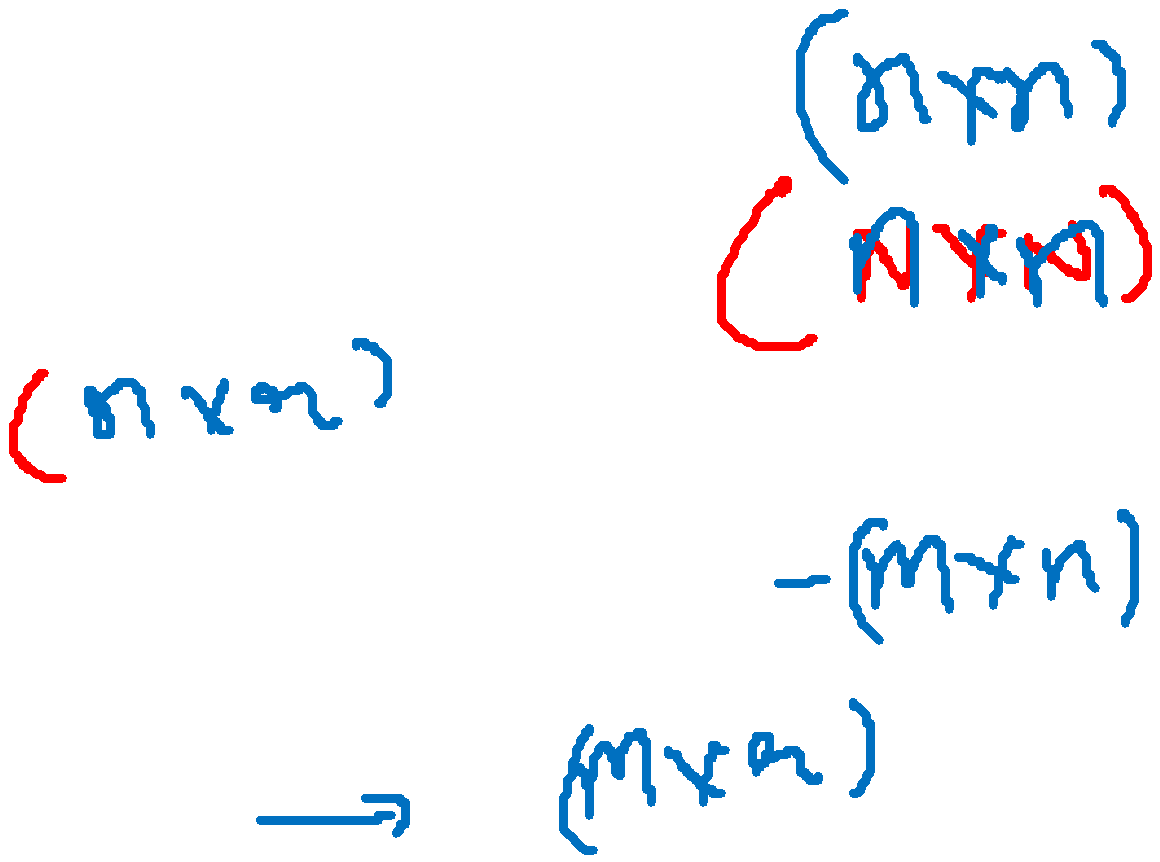 (n×n)
(n×n)
(n×n)
-(m×n)
→ (m×n)